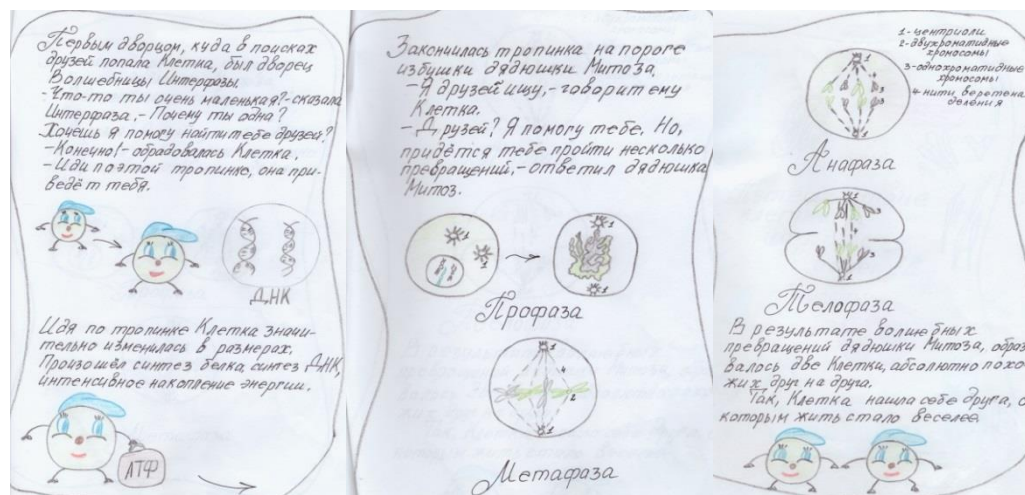 Первым дворцом, куда в поисках
друзей попала Клетка, был дворец
Волшебницы Интерфазы.
- Что-то ты очень маленькая? - сказала
Интерфаза. - Почему ты одна?
Хочешь я помогу найти тебе друзей?
- Конечно! - обрадовалась Клетка.
- Иди по этой тропинке, она при-
ведёт тебя.
ДНК
Идя по тропинке Клетка значи-
тельно изменилась в размерах.
Произошёл синтез белка, синтез ДНК,
интенсивное накопление энергии.
АТФ
Закончилась тропинка на пороге
избушки дядюшки Митоза.
- Я друзей ищу, - говорит ему
Клетка.
- Друзей? Я помогу тебе. Но,
придётся тебе пройти несколько
превращений, - ответил дядюшка
Митоз.
1
1
1
1
Профаза
1
4
2
1
Метафаза
1 - центриоли
2 - двухроматидные
хромосомы
3 - однохроматидные
хромосомы
4 - нити веретена
деления
1
3
3
1
Анафаза
1
3
3
1
Телофаза
В результате волшебных
превращений дядюшки Митоза, образо
валось две Клетки, абсолютно похо
жих друг на друга.
Так, Клетка нашла себе друга, с
которым жить стало веселее.